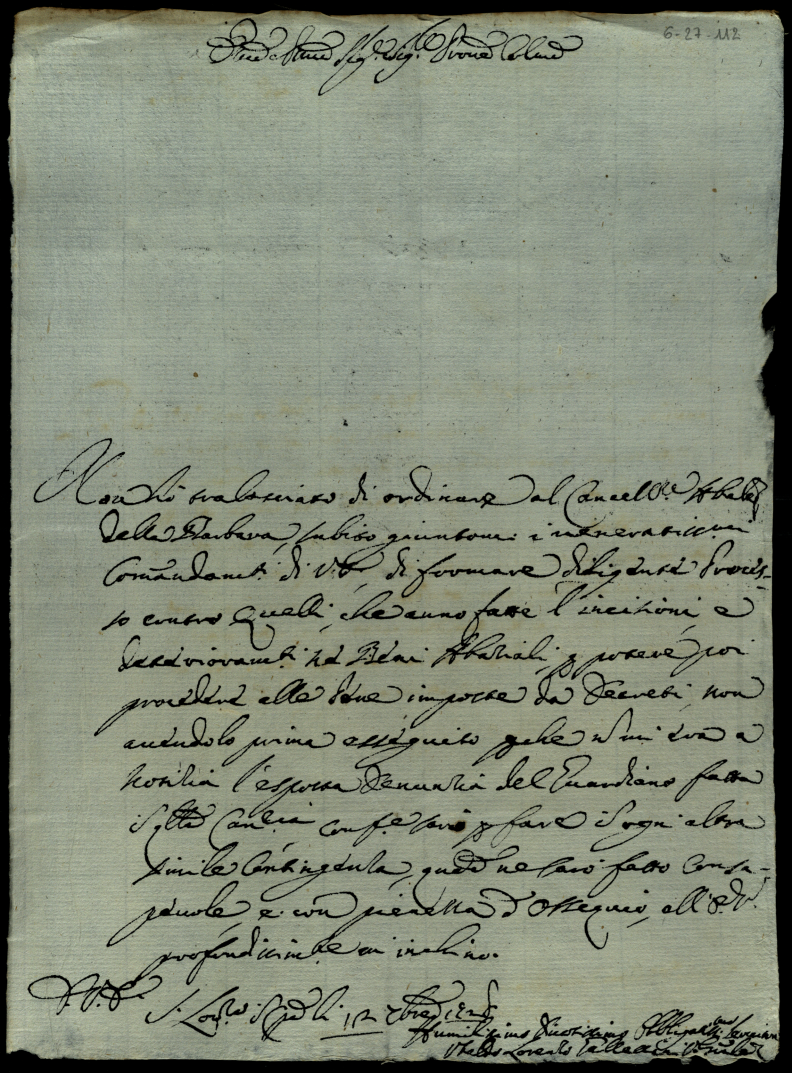 6-27-112
Non hò tralasciato di ordinare al Cancell.re Abbale
della Barbara, subito giuntomi i veneratissimi
Comandam.ti di V.E., di formare diligente Proces-
so contro quelli, che anno fatte l'incisioni, e
deterioramti ne Beni Abbaziali, p potere poi
procedere alle Pene imposte da Decreti, non
avendolo prima esseguito pche n mi era a
notizia l'esposta Denunzia del Guardiano fatta
in Cancia, come sarò p fare in ogni altra
simile Contingenza, quando ne sarò fatto consa-
pevole, e con pienezza d'ossequio all'E.V.
profondissimte mi inchino.
S. Lor.zo
Humilissimo Devotissimo Obbligatmo Servitore
Lorenzo